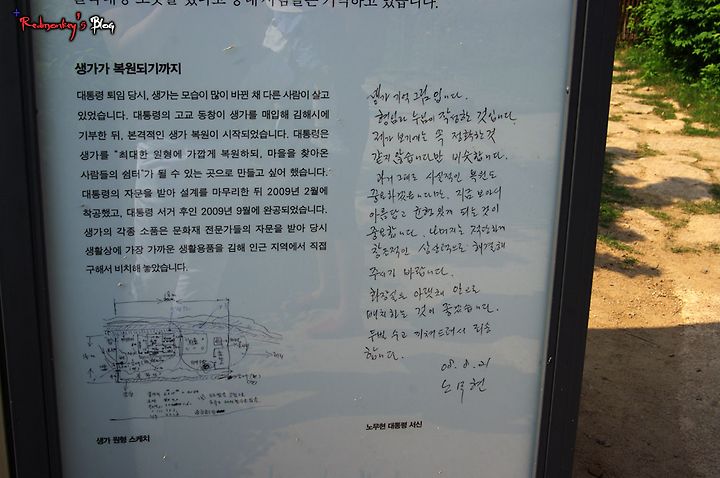 Redmonkey's Blog
있습니다.
생가가 복원되기까지
대통령 퇴임 당시, 생가는 모습이 많이 바뀐 채 다른 사람이 살고
있었습니다. 대통령의 고교 동창이 생가를 매입해 김해시에
기부한 뒤, 본격적인 생가 복원이 시작되었습니다. 대통령은
생가를 "최대한 원형에 가깝게 복원하되, 마을을 찾아온
사람들의 쉼터"가 될 수 있는 곳으로 만들고 싶어 했습니다.
대통령의 자문을 받아 설계를 마무리한 뒤 2009년 2월에
착공했고, 대통령 서거 후인 2009년 9월에 완공되었습니다.
생가의 각종 소품은 문화재 전문가들의 자문을 받아 당시
생활상에 가장 가까운 생활용품을 김해 인근 지역에서 직접
구해서 비치해 놓았습니다.
생가 원형 스케치
생가 기억 그림 입니다.
형님과 누님이 작성한 것입니다.
제가 보기에는 속 정확한것
같지 않습니다만 비슷합니다.
과거 그대로 사실적인 복원도
중요하겠습니다만, 지금 보아서
아름답고 균형 있게 되는 것이
중요합니다. 나머지는 적당하게
창조적인 상상력으로 해결해
주시기 바랍니다.
화장실은 아랫채 앞으로
배치하는 것이 좋겠습니다.
두번 수고 끼쳐드려서 죄송
합니다.
08. 8. 21
노무현
노무현 대통령 서신